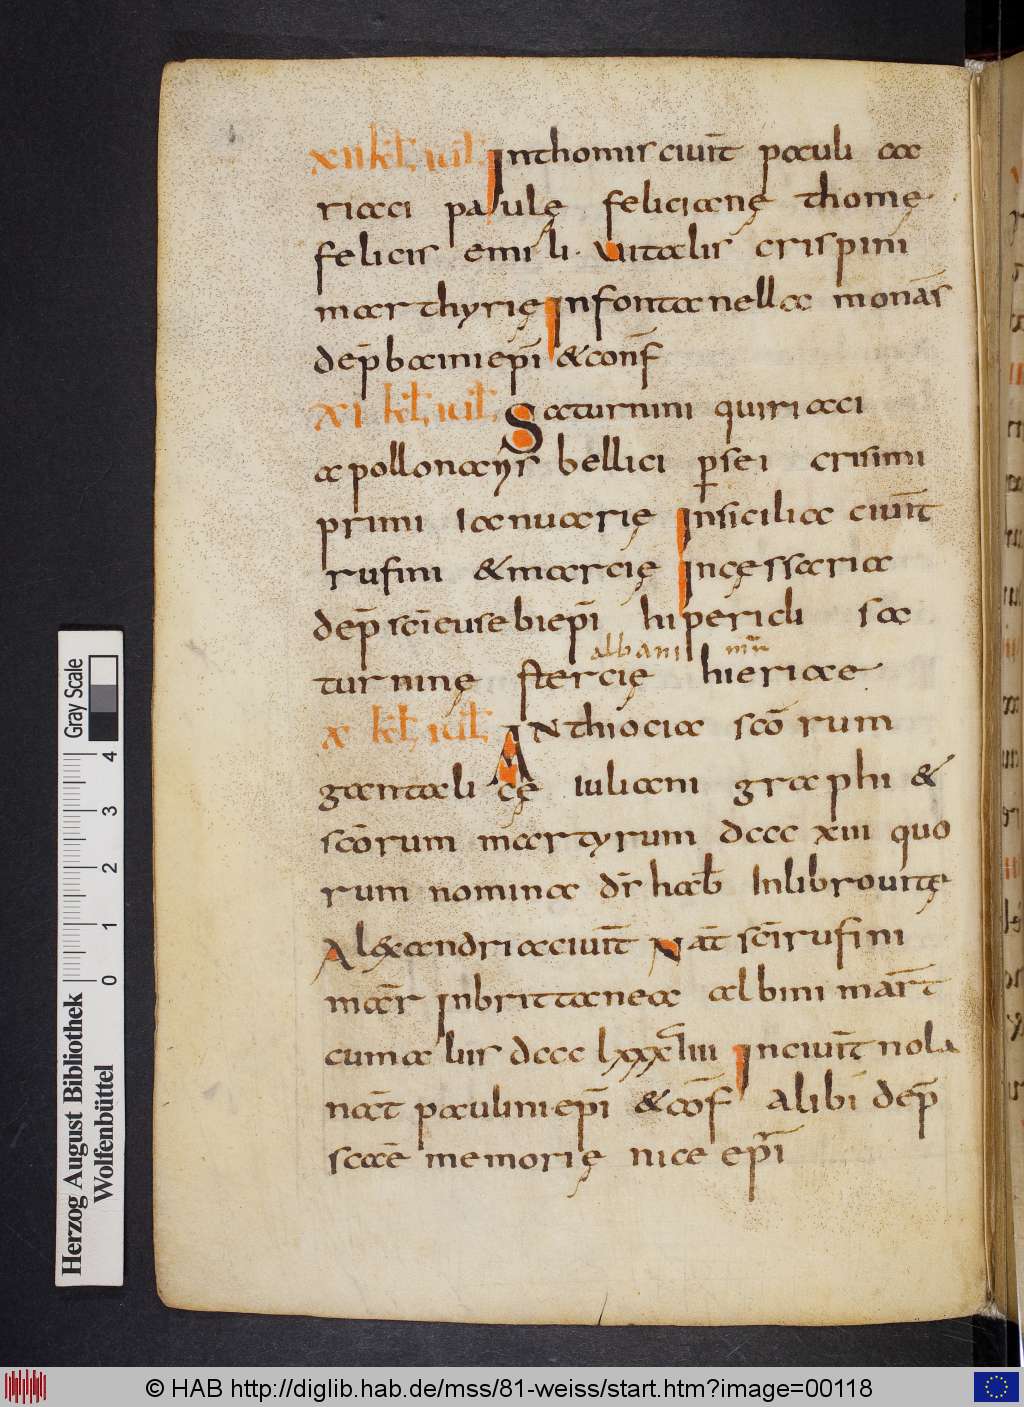 XII kł iuł Inthomis ciuit̄ pauli cя
riaci paulę felicianę thomę
felicis emili. uitalis crispini
marthyrię Infontanella monas̄
dep̄ bainiep̄i &conf̄
XI kł iuł Saturnini quiriaci
apollonaӱs bellici ꝑsei crisimi
primi Ianuarię Insicilia ciuit̄
rufini &marcię Incęssaria
dep̄ sc̄ieusebiepī hipericli sa
albani mr̄
turninę stercię hieriace
X kł iuł ANthiocia sc̄o rum
gantali cę Iuliani graphi &
sc̄orum martyrum dccc xiii quo
rum nomina dr̄ hab̄ Inlibrouitę
Alęxandriaciuit̄ Nat̄ sc̄irufini
mar̄ Inbrittanea albini mar̄t
cumaliis dccc lxxxuiii Inciuit̄ nola
nat̄ pauliniepī &co̅f alibi dep̄
scae̅ memorię nice epi̅
Gray Scale
4
3
2
1
0
Herzog August Bibliothek
Wolfenbüttel
© HAB http://diglib.hab.de/mss/81-weiss/start.htm?image=00118